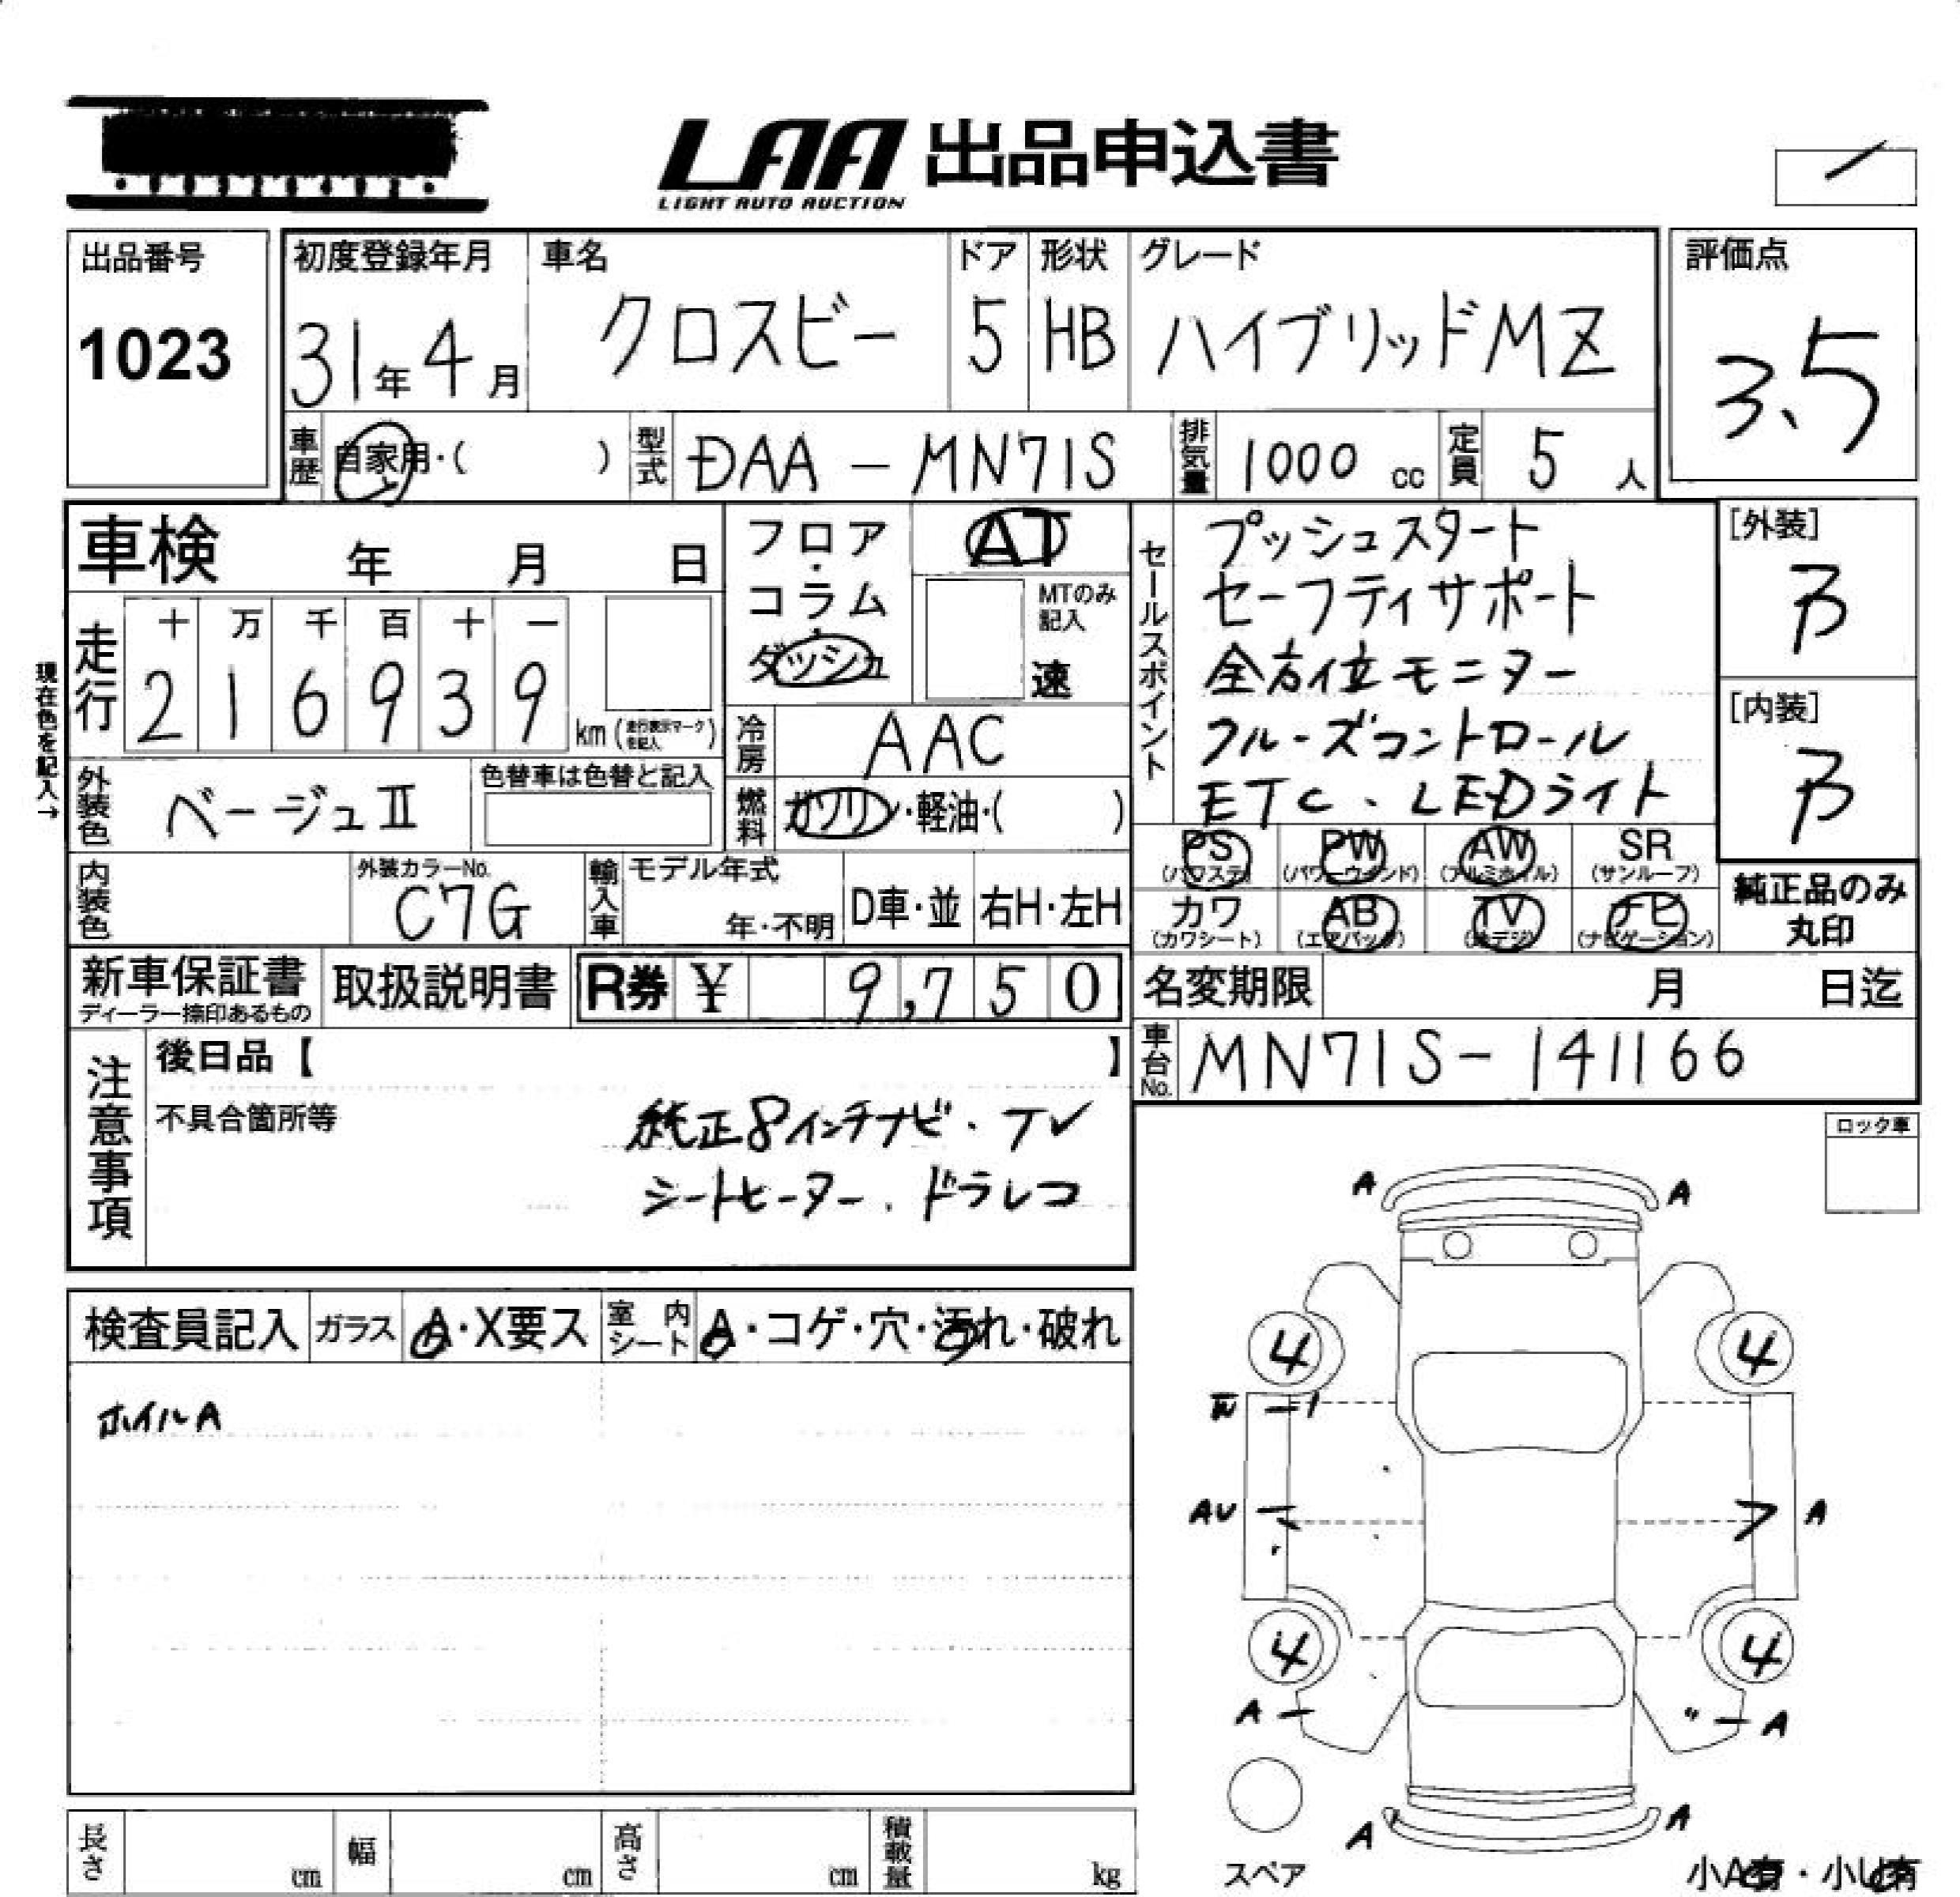 LAA 出品申込書
LIGHT AUTO AUCTION
出品番号
1023
初度登録年月
31年4月
車名
クロスビー
ドア
5
形状
HB
グレード
ハイブリッドMZ
評価点
3.5
車歴
自家用・( )
型式
DAA-MN71S
排気量
1000 cc
定員
5 人
車検 年 月 日
フロア・コラム・ダッシュ
AT
MTのみ記入
速
セールスポイント
プッシュスタート
セーフティサポート
全方位モニター
クルーズコントロール
ETC、LEDライト
[外装]
B
[内装]
B
現在色を記入→
走行
十 万 千 百 十 一
2 1 6 9 3 9
km (走行表示マークを記入)
冷房
AAC
外装色
ベージュII
色替車は色替と記入
燃料
ガソリン・軽油・( )
PS (パワステ)
PW (パワーウインド)
AW (アルミホイル)
SR (サンルーフ)
内装色
外装カラーNo.
C7G
輸入車
モデル年式
年・不明
D車・並
右H・左H
カワ (カワシート)
AB (エアバック)
TV (地デジ)
ナビ (ナビゲーション)
純正品のみ
丸印
新車保証書
ディーラー捺印あるもの
取扱説明書
R券 ¥ 9,750
名変期限 月 日迄
車台No.
MN71S-141166
注意事項
後日品【 】
不具合箇所等
純正8インチナビ・TV
シートヒーター、ドラレコ
ロック車
検査員記入
ガラス
A・X要ス
室内シート
A・コゲ・穴・汚れ・破れ
ホイルA
A A
4 4
AU A
4 4
A A
A A
スペア
小A有・小U有
長さ cm
幅 cm
高さ cm
積載量 kg